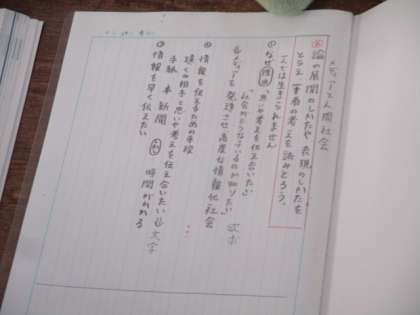 メディアと人間社会
論の展開のしかたや表現のしかたを
とらえ、筆者の考えを読みとろう。
人では生きていられません
①なぜ 思い、考えを伝え合いたい
社会がどうなっているのか知りたい
メディアを発達させ高度な情報化社会 欲求
② 情報を伝えるための手段
遠くの相手と思いや考えを伝え合いたい 文字
手紙 本 新聞 時間がかかる
③ 情報を早く伝えたい